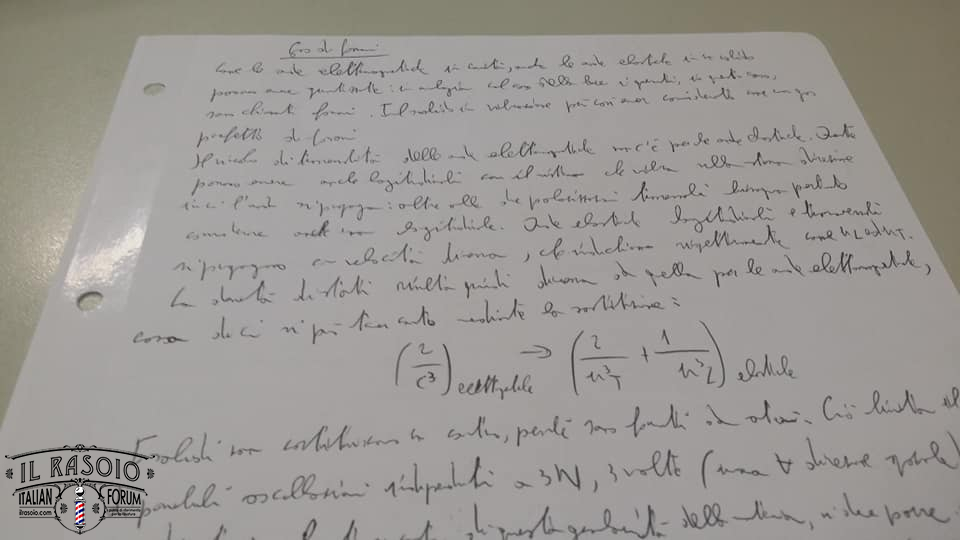 Gas di fononi
Come le onde elettromagnetiche in cavità, anche le onde elastiche in un solido
possono essere quantizzate: in analogia col caso della luce i quanti, in questo caso,
sono chiamati fononi. Il solido in vibrazione può così esser considerato come un gas
perfetto di fononi
Il vincolo di trasversalità delle onde elettromagnetiche non c'è per le onde elastiche. Queste
possono essere anche longitudinali con il mezzo che vibra nella stessa direzione
in cui l'onda si propaga: oltre alle due polarizzazioni trasversali bisogna pertanto
considerarne anche una longitudinale. Onde elastiche longitudinali e trasversali
si propagano a velocità diversa, che indichiamo rispettivamente come u_L ed u_T.
La densità di stati risulta quindi diversa da quella per le onde elettromagnetiche,
cosa di cui si può tener conto mediante la sostituzione:
(2/c³) → (2/u³_T + 1/u³_L) elastiche
I solidi non costituiscono un continuo, perché sono formati da atomi. Ciò limita
possibili oscillazioni indipendenti a 3N, 3 volte (una ∀ direzione
di questa della
IL RASOIO
ITALIAN FORUM
ilrasoio.com